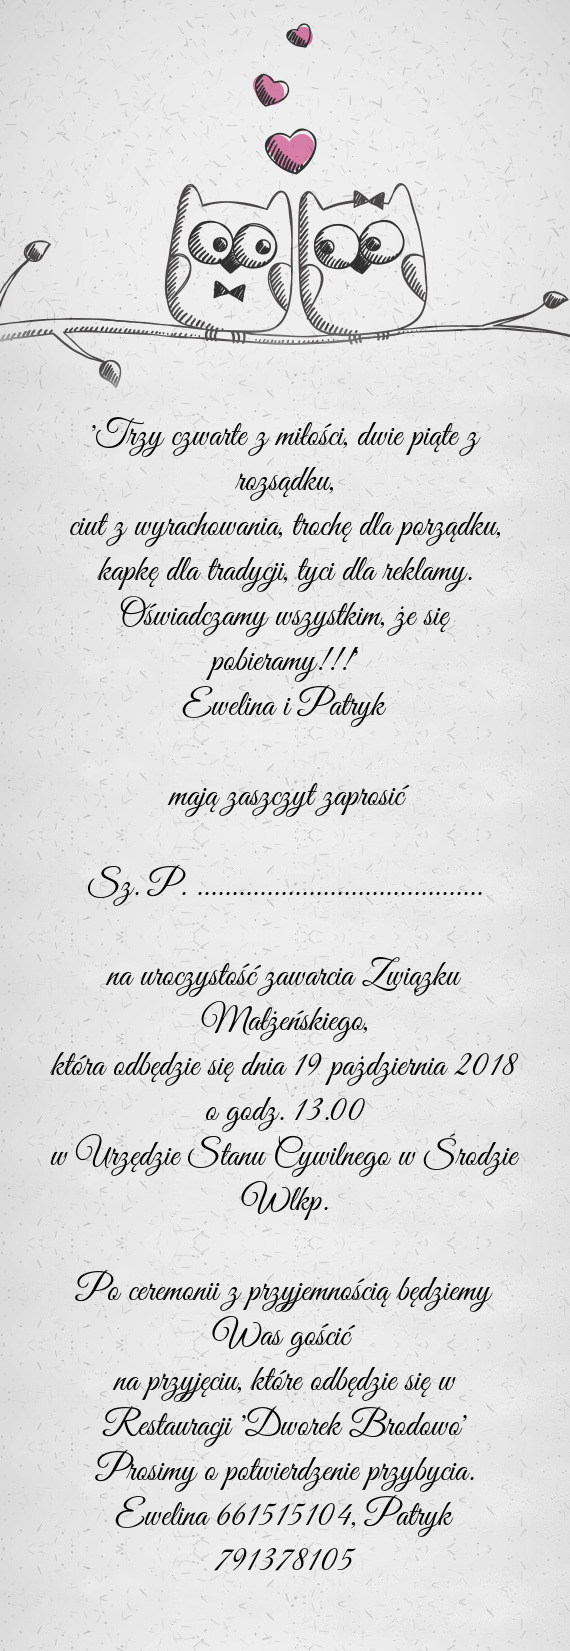 'Trzy czwarte z miłości, dwie piąte z
rozsądku,
ciut z wyrachowania, trochę dla porządku,
kapkę dla tradycji, tyci dla reklamy.
Oświadczamy wszystkim, że się
pobieramy!!!'
Ewelina i Patryk
mają zaszczyt zaprosić
Sz. P. ..........................................
na uroczystość zawarcia Związku
Małżeńskiego,
która odbędzie się dnia 19 października 2018
o godz. 13.00
w Urzędzie Stanu Cywilnego w Środzie
Wlkp.
Po ceremonii z przyjemnością będziemy
Was gościć
na przyjęciu, które odbędzie się w
Restauracji 'Dworek Brodowo'
Prosimy o potwierdzenie przybycia.
Ewelina 661515104, Patryk
791378105